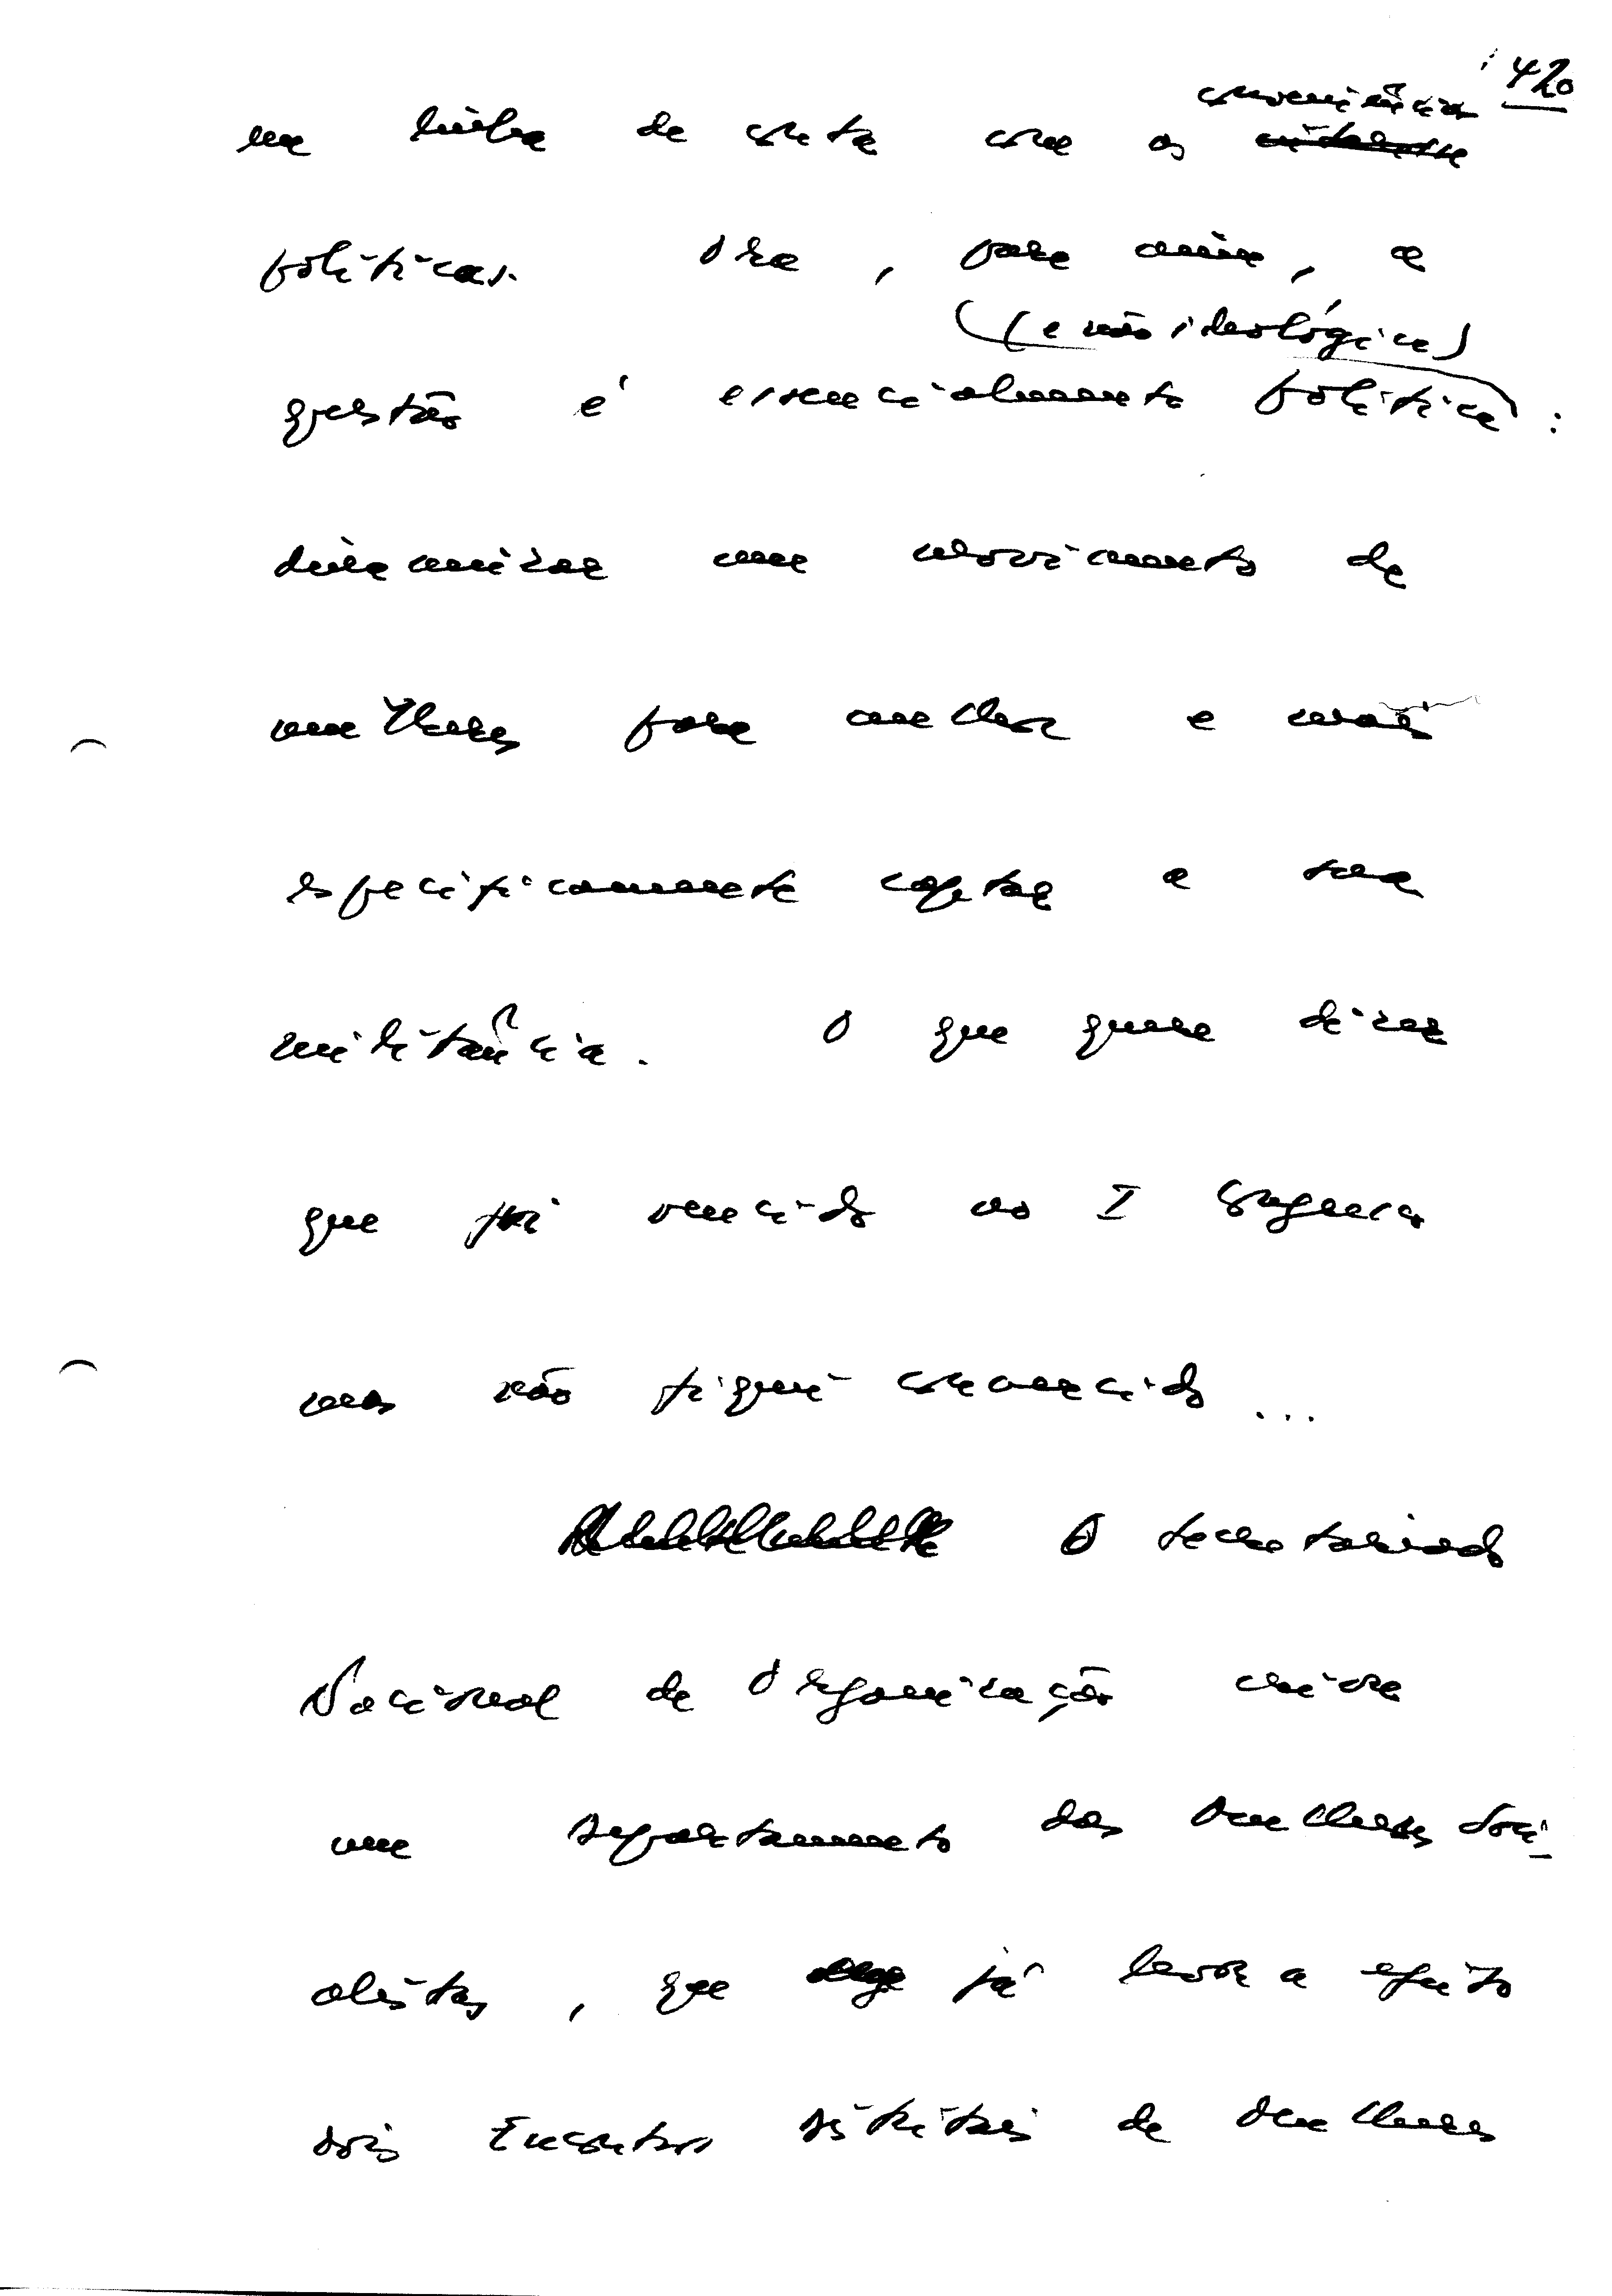 420
conveniências
na linha de conta com as
políticas. Ora, para mim, a
(e não ideológica)
questão é essencialmente política:
dinamizar um movimento de
mulheres para melhor e mais
especificamente captar a sua
militância. O que quer dizer
que fui vencido no I Congresso
mas não fiquei convencido...
O Secretariado
Nacional de Organização criou
um departamento das Mulheres Soci-
alistas, que já levou a efeito
dois Encontros distritais de Mulheres